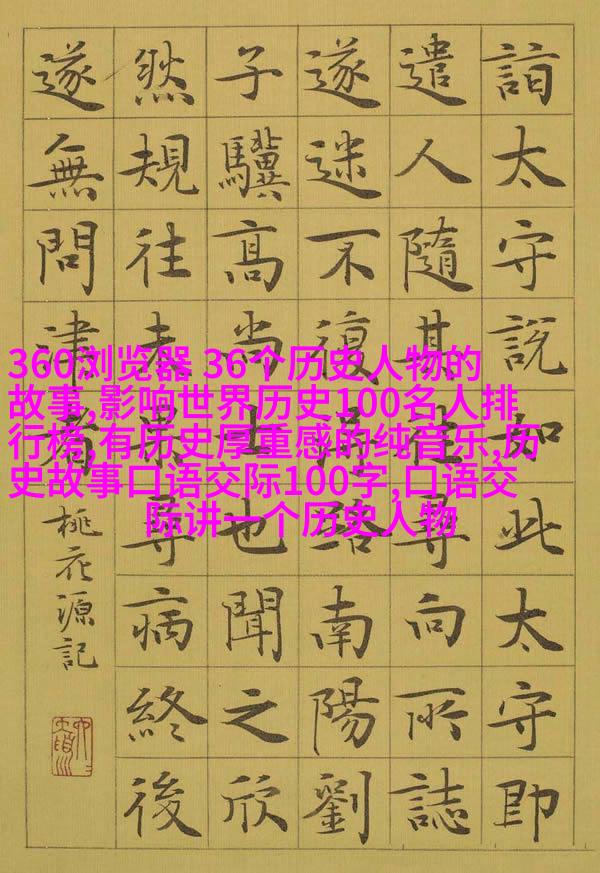 詣太守說如此太守即
遣人隨其往尋向所誌
遂迷不復得路南陽劉
子驥高尚士也聞之欣
然規往未果尋病終後
遂無問津者
桃花源記
360浏览器 36个历史人物的
故事,影响世界历史100名人排
行榜,有历史厚重感的纯音乐,历
史故事口语交际100字,口语交
际讲一个历史人物